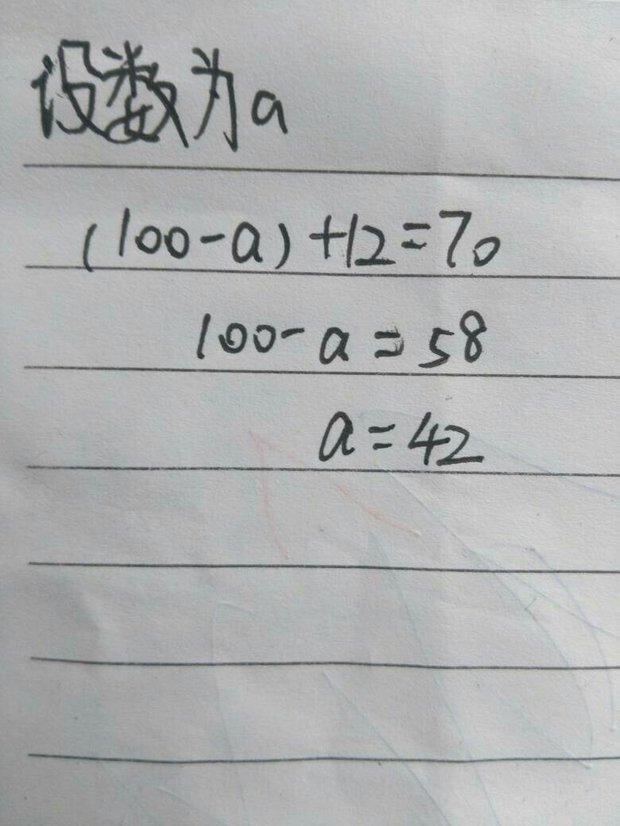 设数为a
(100-a)+12=70
100-a=58
a=42